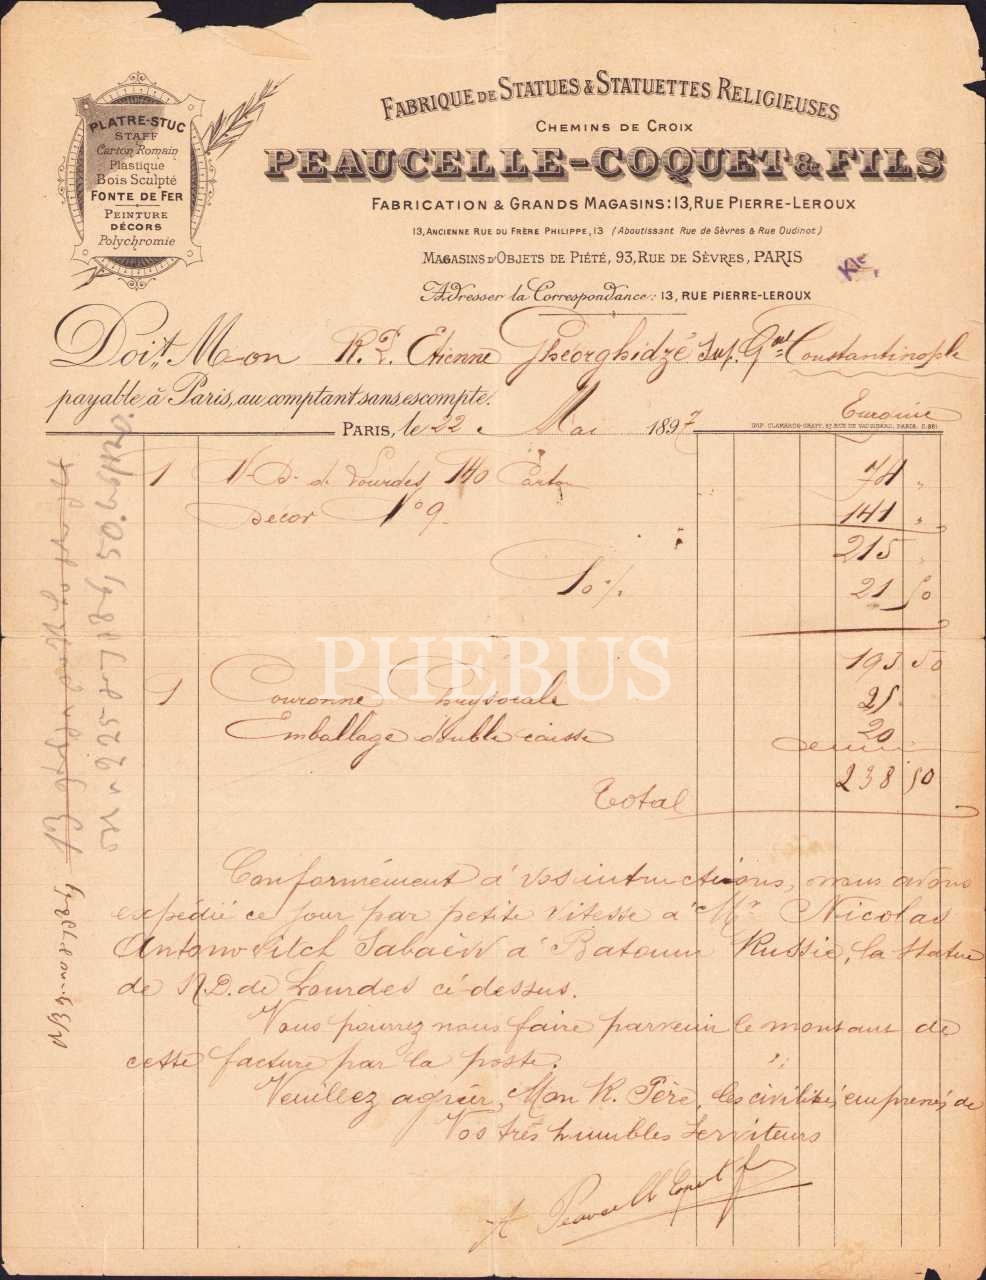 FABRIQUE DE STATUES & STATUETTES RELIGIEUSES
CHEMINS DE CROIX
PEAUCELLE-COQUET & FILS
FABRICATION & GRANDS MAGASINS: 13, RUE PIERRE-LEROUX
13, ANCIENNE RUE DU FRÈRE PHILIPPE, 13 (Aboutissant Rue de Sèvres & Rue Oudinot)
MAGASINS D'OBJETS DE PIÉTÉ, 93, RUE DE SÈVRES, PARIS
Adresser la Correspondance: 13, RUE PIERRE-LEROUX
PLATRE-STUC
STAFF
Carton Romain
Plastique
Bois Sculpté
FONTE DE FER
PEINTURE
DÉCORS
Polychromie
Doit M on R. P. Etienne Ghéorghidzé Sup. Gal Constantinople
payable à Paris, au comptant sans escompte.
PARIS, le 22 Mai 1897
IMP. CLAMARON-GRAFF, 57, RUE DE VAUGIRARD, PARIS.
1 N-D. d. Lourdes 140 Carton 74 "
Décor No 9. 141 "
215 "
10 % 21 50
193 50
1 Couronne Chrysocale 25
Emballage double caisse 20
Total 238 50
PHEBUS
Conformément à vos instructions, nous avons
expédié ce jour par petite vitesse à Mr Nicolas
Antonovitch Sabaëw à Batoum Russie, la statue
de N.D. de Lourdes ci-dessus.
Vous pourrez nous faire parvenir le montant de
cette facture par la poste.
Veuillez agréer, Mon R. Père, les civilités empressées de
Vos très humbles serviteurs
Peaucelle Coquet & fils